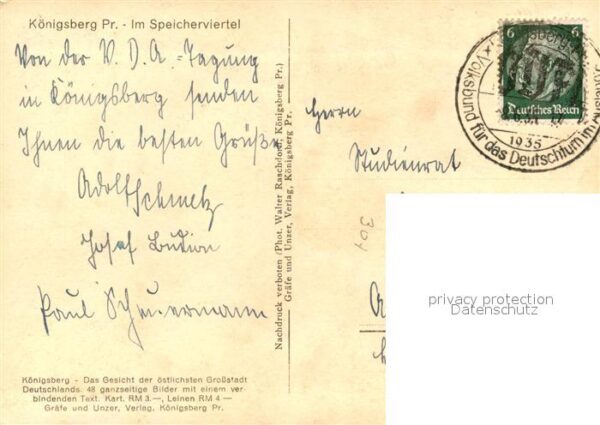 Königsberg Pr. - Im Speicherviertel
Von der V. D. A.-Tagung
in Königsberg senden
Ihnen die besten Grüße
Adolf Schmetz
Josef
Paul Scheuermann
Königsberg - Das Gesicht der östlichsten Großstadt
Deutschlands. 48 ganzseitige Bilder mit einem ver-
bindenden Text. Kart. RM 3.—, Leinen RM 4.—
Gräfe und Unzer, Verlag, Königsberg Pr.
Nachdruck verboten (Phot. Walter Raschdorff, Königsberg Pr.)
Gräfe und Unzer, Verlag, Königsberg Pr.
6 6
Deutsches Reich
Volksbund für das Deutschtum im Ausland
1935
Herrn
Studienrat
301
privacy protection
Datenschutz